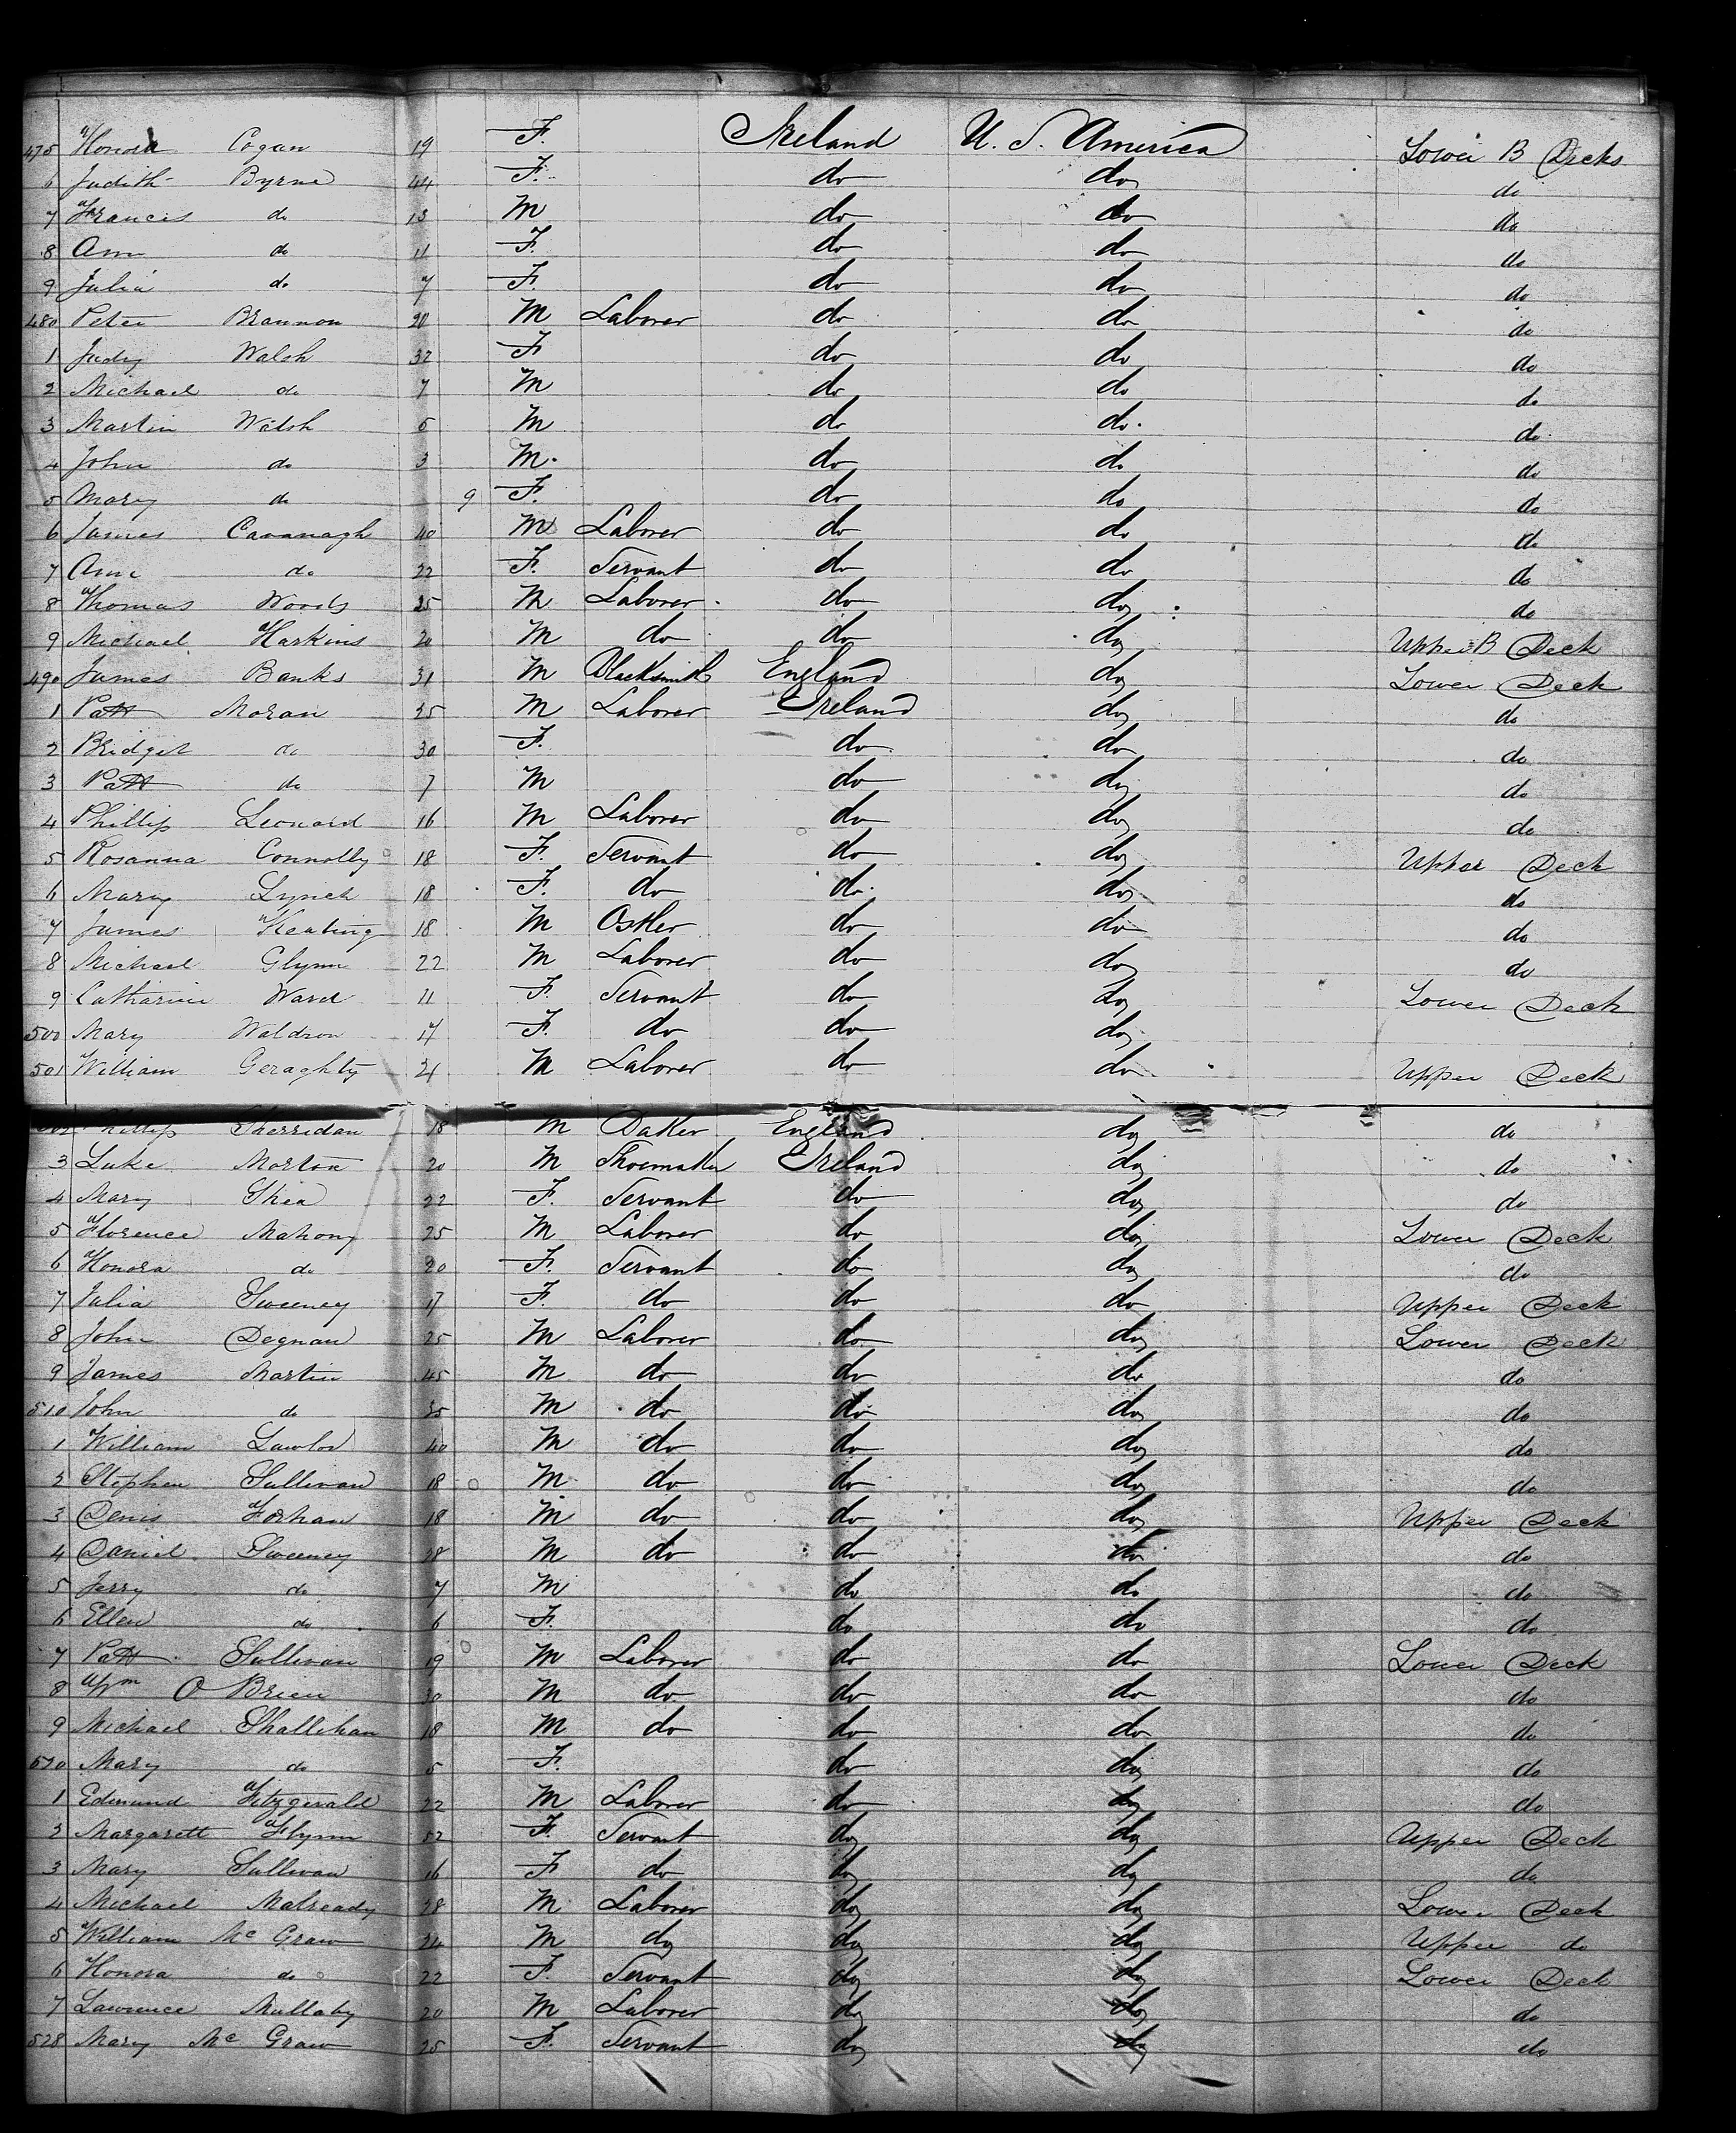 475 Honora Cogan 19 F. Ireland U. S. America Lower B Decks
6 Judith Byrne 44 F. do do do
7 Francis do 13 M do do do
8 Ann do 11 F. do do do
9 Julia do 7 F do do do
480 Peter Brannon 20 M Laborer do do do
1 Judy Walsh 32 F do do do
2 Michael do 7 M do do do
3 Martin Walsh 5 M do do. do
4 John do 3 M. do do do
5 Mary do 9 F. do do do
6 James Cavanagh 40 M Laborer do do do
7 Ann do 22 F. Servant do do do
8 Thomas Woods 25 M Laborer do do do
9 Michael Harkins 20 M do do do Upper B Deck
490 James Banks 31 M Blacksmith England do Lower Deck
1 Patt Moran 35 M Laborer Ireland do do
2 Bridget do 30 F. do do do
3 Patt do 7 M do do do
4 Phillip Leonard 16 M Laborer do do do
5 Rosanna Connolly 18 F. Servant do do Upper Deck
6 Mary Lynch 18 F. do do do do
7 James Keating 18 M Ostler do do do
8 Michael Glynn 22 M Laborer do do do
9 Catharine Ward 11 F. Servant do do Lower Deck
500 Mary Waldron 17 F. do do do
501 William Geraghty 21 M Laborer do do Upper Deck
502 Phillip Sherridan 18 M Baker England do do
3 Luke Morton 20 M Shoemaker Ireland do do
4 Mary Shea 22 F. Servant do do do
5 Florence Mahony 25 M Laborer do do Lower Deck
6 Honora do 20 F. Servant do do do
7 Julia Sweeney 17 F. do do do Upper Deck
8 John Degnan 25 M Laborer do do Lower Deck
9 James Martin 45 M do do do do
510 John do 35 M do do do do
1 William Lawlor 40 M do do do do
2 Stephen Sullivan 18 M do do do do
3 Denis Forhan 18 M do do do Upper Deck
4 Daniel Sweeney 28 M do do do do
5 Jerry do 7 M do do do
6 Ellen do 6 F. do do do
7 Patt Sullivan 19 M Laborer do do Lower Deck
8 Wm O Brien 30 M do do do do
9 Michael Shallihan 18 M do do do do
520 Mary do 5 F. do do do
1 Edmund Fitzgerald 22 M Laborer do do do
2 Margarett Flynn 52 F. Servant do do Upper Deck
3 Mary Sullivan 16 F do do do do
4 Michael Malready 28 M Laborer do do Lower Deck
5 William Mc Graw 24 M do do do Upper do
6 Honora do 22 F. Servant do do Lower Deck
7 Lawrence Mullaby 20 M Laborer do do do
528 Mary Mc Graw 25 F. Servant do do do